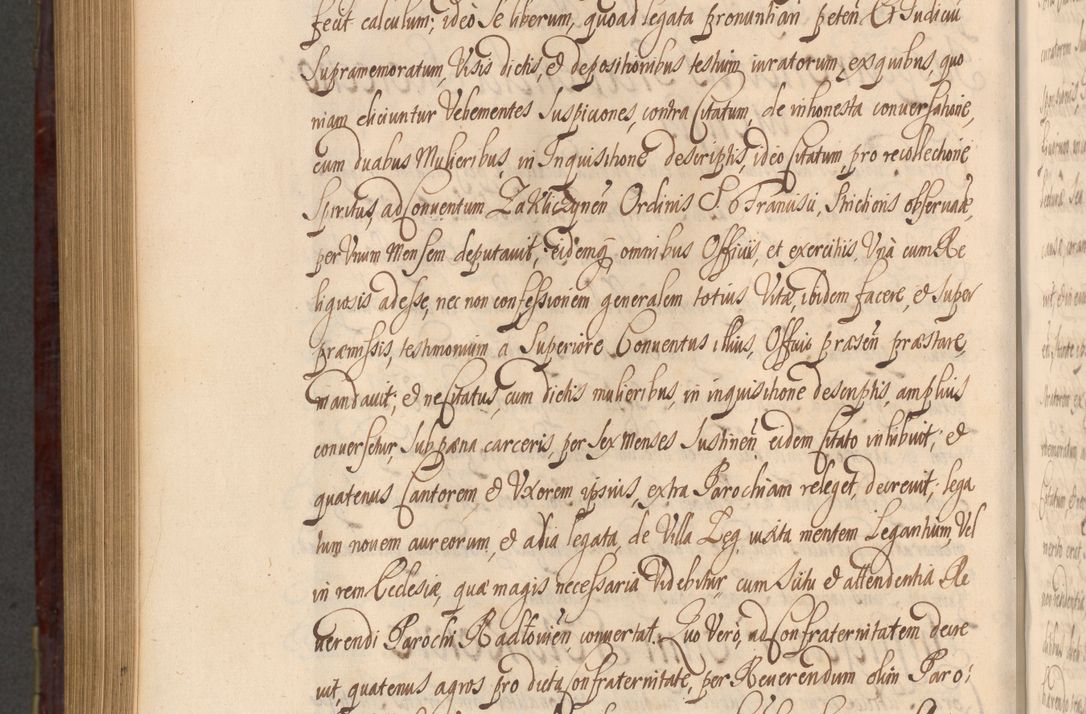 fecit calculum; ideo se liberum, quoad legata pronuntiari peteñ Et Iudiciũ
supramemoratum, Visis dictis, et depositionibus testium iuratorum, ex quibus, quo
niam eliciuntur Vehementes suspiciones, contra Citatum, de inhonesta conuersatione,
cum duabus Mulieribus, in Inquisitione descriptis, ideo Citatum, pro recollectione
Spiritus, ad Conuentum Zakliczyneñ Ordinis S. Francisci, Strictioris obseruañ,
per Vnum Mensem deputauit, eidemq omnibus Officiis, et exercitiis, Vna cum Re
ligiosis adesse, nec non confessionem generalem totius Vitæ, ibidem facere, et super
præmissis, testimonium a Superiore Conuentus illius, Officio præseñ præstare,
mandauit; et ne Citatus, cum dictis mulieribus, in inquisitione descriptis, amplius
conuersetur, sub pæna carceris, per sex menses sustineñ eidem Citato inhibuit; et
quatenus Cantorem, et Vxorem ipsius, extra Parochiam releget, decreuit; lega
tum nouem aureorum, et alia legata, de Villa Łęg, iuxta mentem Legantium, Vel
in rem Ecclesiæ, quæ magis necessaria Videbitur, cum scitu et attendentia Re
uerendi Parochi Radłouieñ, conuertat. Quo Vero, ad Confraternitatem decre
uit, quatenus agros pro dicta Confraternitate, per Reuerendum olim Paro: